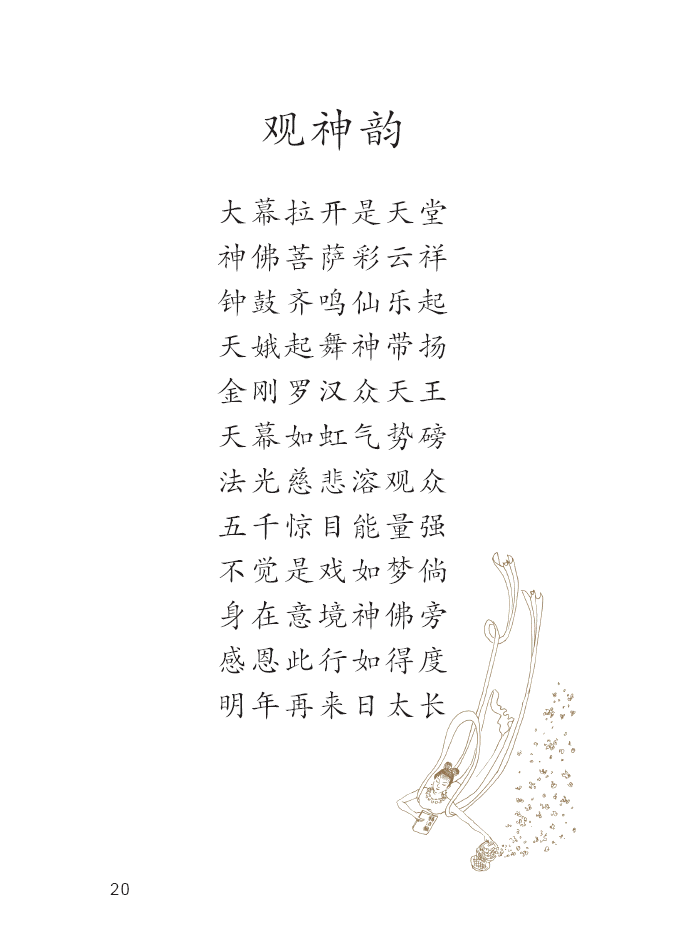 观神韵
大幕拉开是天堂
神佛菩萨彩云祥
钟鼓齐鸣仙乐起
天娥起舞神带扬
金刚罗汉众天王
天幕如虹气势磅
法光慈悲溶观众
五千惊目能量强
不觉是戏如梦倘
身在意境神佛旁
感恩此行如得度
明年再来日太长
20